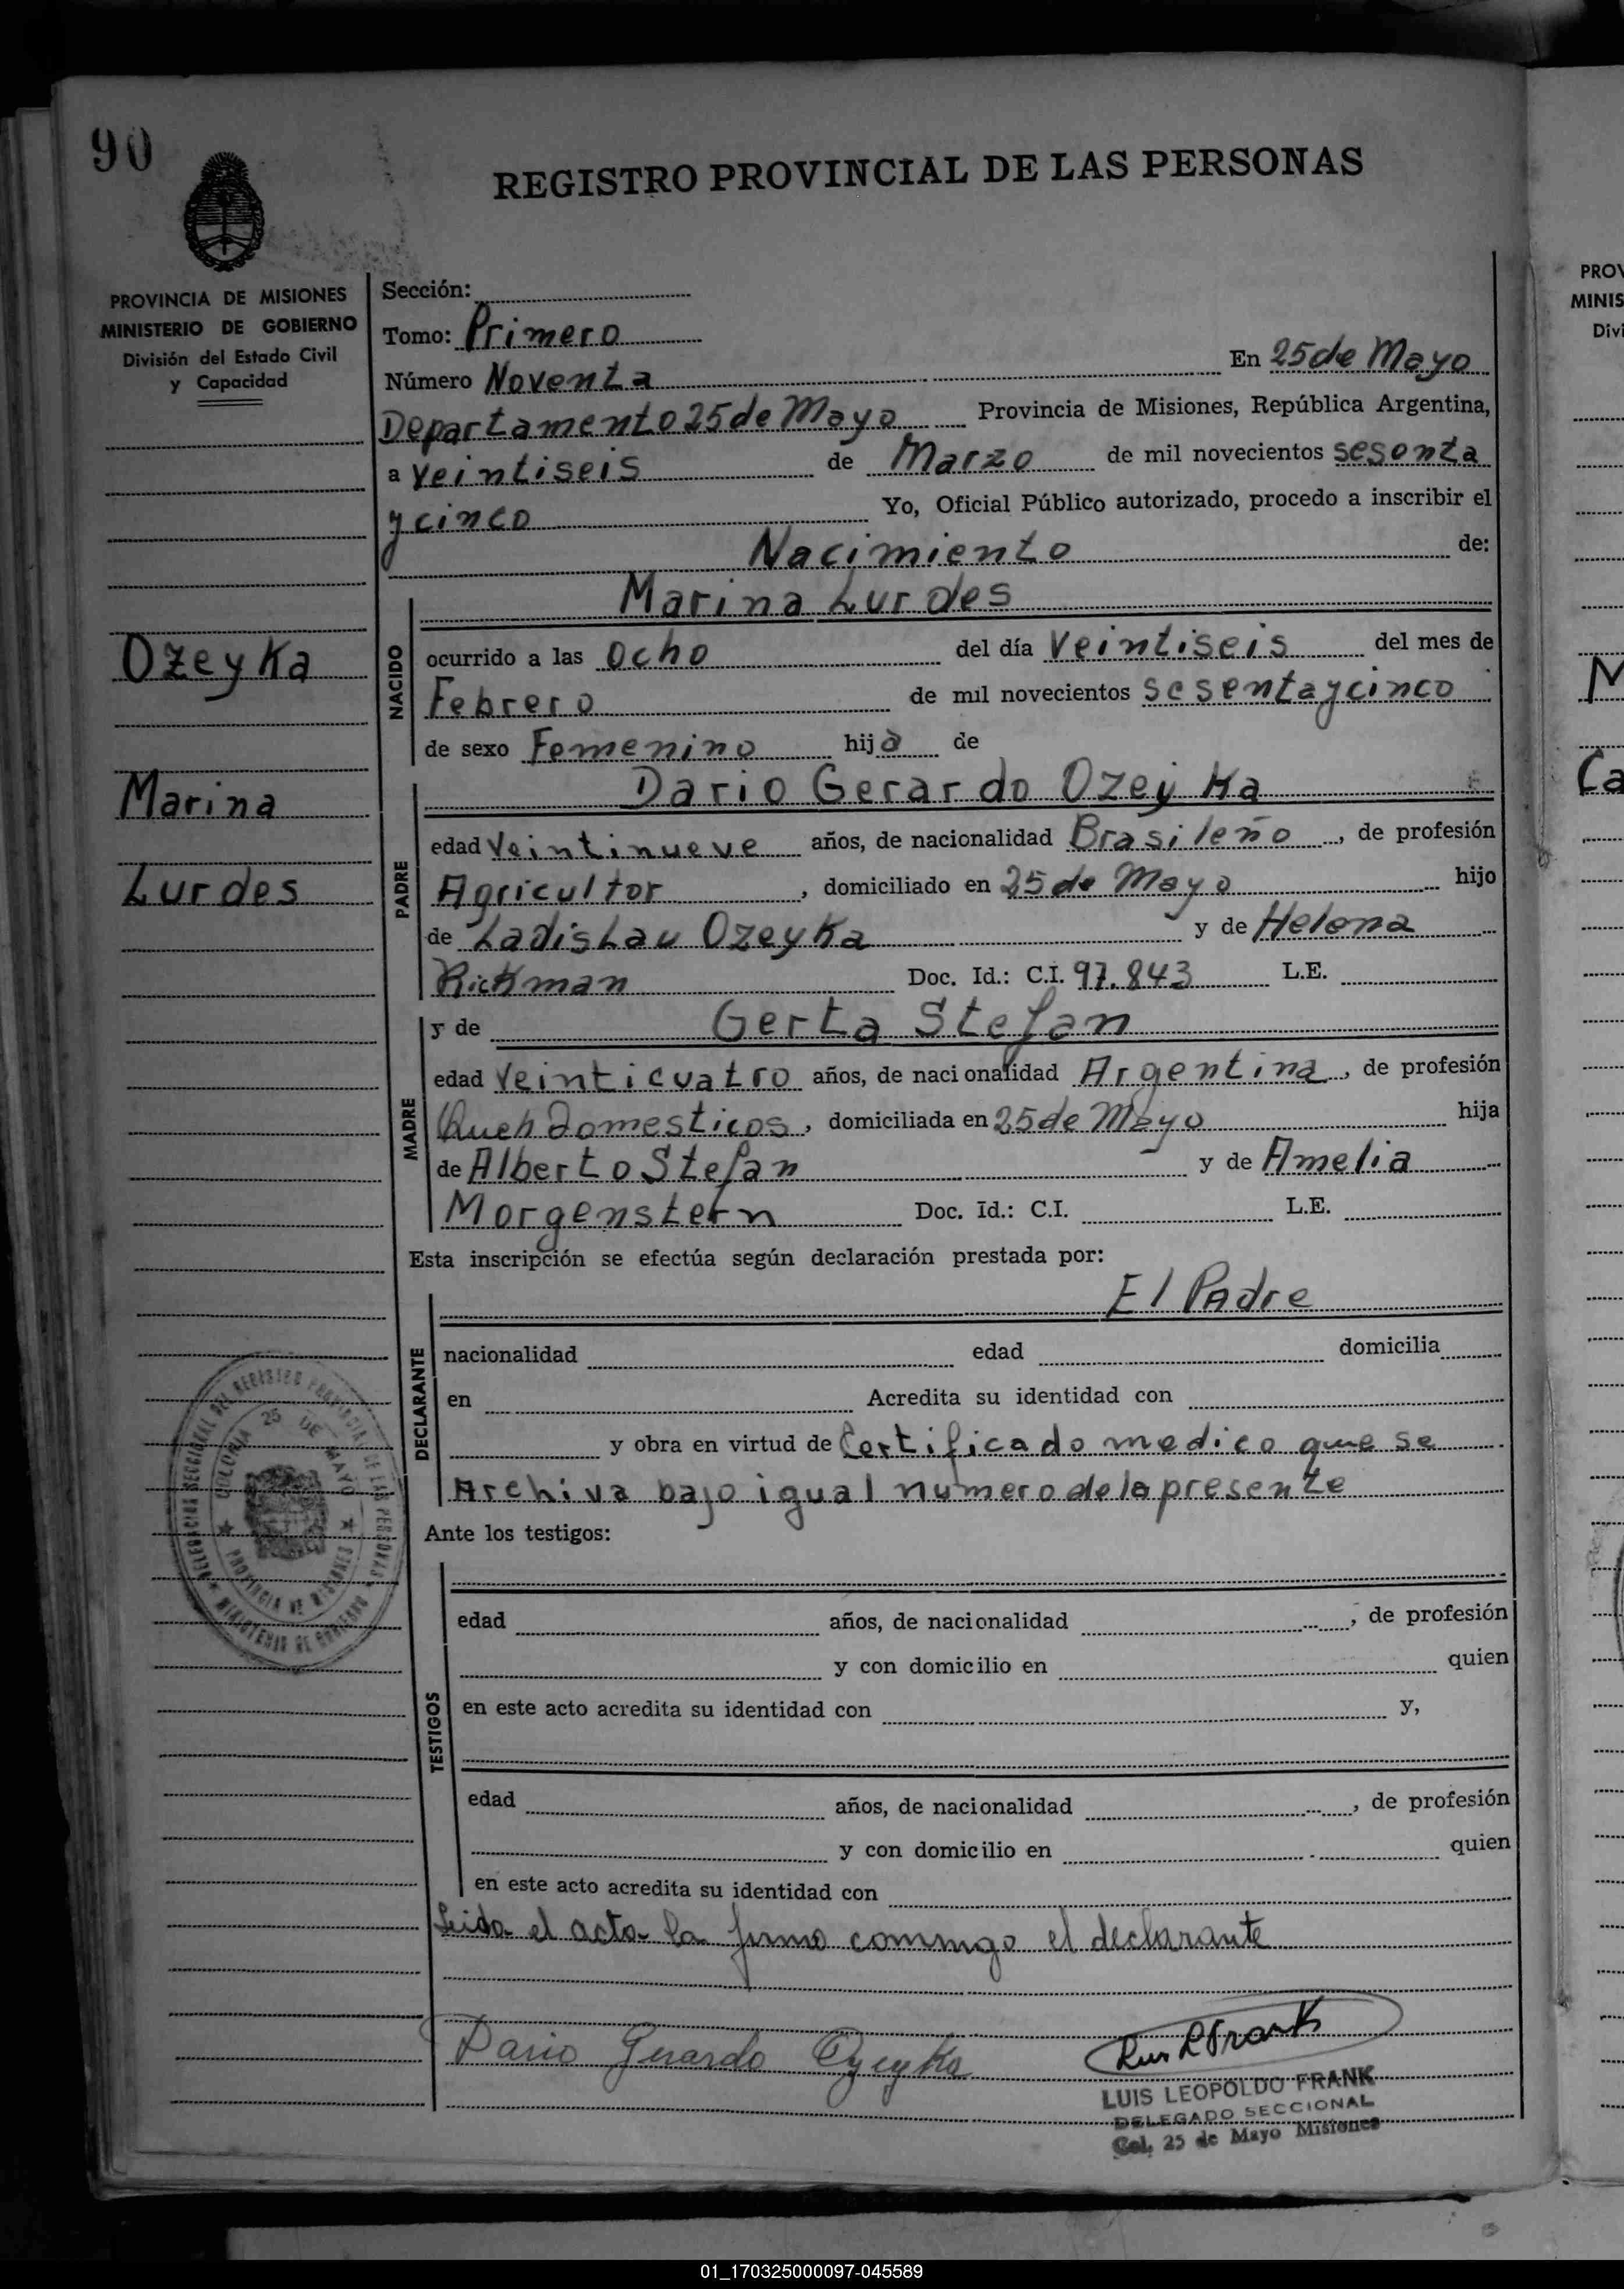 90
REGISTRO PROVINCIAL DE LAS PERSONAS
PROVINCIA DE MISIONES
MINISTERIO DE GOBIERNO
División del Estado Civil
y Capacidad
Ozeyka
Marina
Lurdes
Sección:
Tomo: Primero
Número Noventa En 25 de Mayo
Departamento 25 de Mayo Provincia de Misiones, República Argentina,
a veintiseis de Marzo de mil novecientos sesenta
y cinco Yo, Oficial Público autorizado, procedo a inscribir el
Nacimiento de:
Marina Lurdes
NACIDO
ocurrido a las ocho del día veintiseis del mes de
Febrero de mil novecientos sesenta y cinco
de sexo Femenino hija de
Dario Gerardo Ozeyka
PADRE
edad veintinueve años, de nacionalidad Brasileño, de profesión
Agricultor, domiciliado en 25 de Mayo hijo
de Ladislau Ozeyka y de Helena
Rickman Doc. Id.: C.I. 97.843 L.E.
y de Gerta Stefan
MADRE
edad veinticuatro años, de nacionalidad Argentina, de profesión
Queh Domesticos, domiciliada en 25 de Mayo hija
de Alberto Stefan y de Amelia
Morgenstern Doc. Id.: C.I. L.E.
Esta inscripción se efectúa según declaración prestada por:
El Padre
DECLARANTE
nacionalidad edad domicilia
en Acredita su identidad con
y obra en virtud de Certificado medico que se
Archiva bajo igual numero de la presente
Ante los testigos:
TESTIGOS
edad años, de nacionalidad , de profesión
y con domicilio en quien
en este acto acredita su identidad con y,
edad años, de nacionalidad , de profesión
y con domicilio en quien
en este acto acredita su identidad con
Leida el acta la firma conmigo el declarante
Dario Gerardo Ozeyka
Luis L Frank
LUIS LEOPOLDO FRANK
DELEGADO SECCIONAL
Col. 25 de Mayo Misiones
DELEGACION SECCIONAL DEL REGISTRO PROVINCIAL DE LAS PERSONAS
COLONIA 25 DE MAYO
PROVINCIA DE MISIONES
MINISTERIO DE GOBIERNO
PROV
MINIS
Divi
M
Ca
01_170325000097-045589